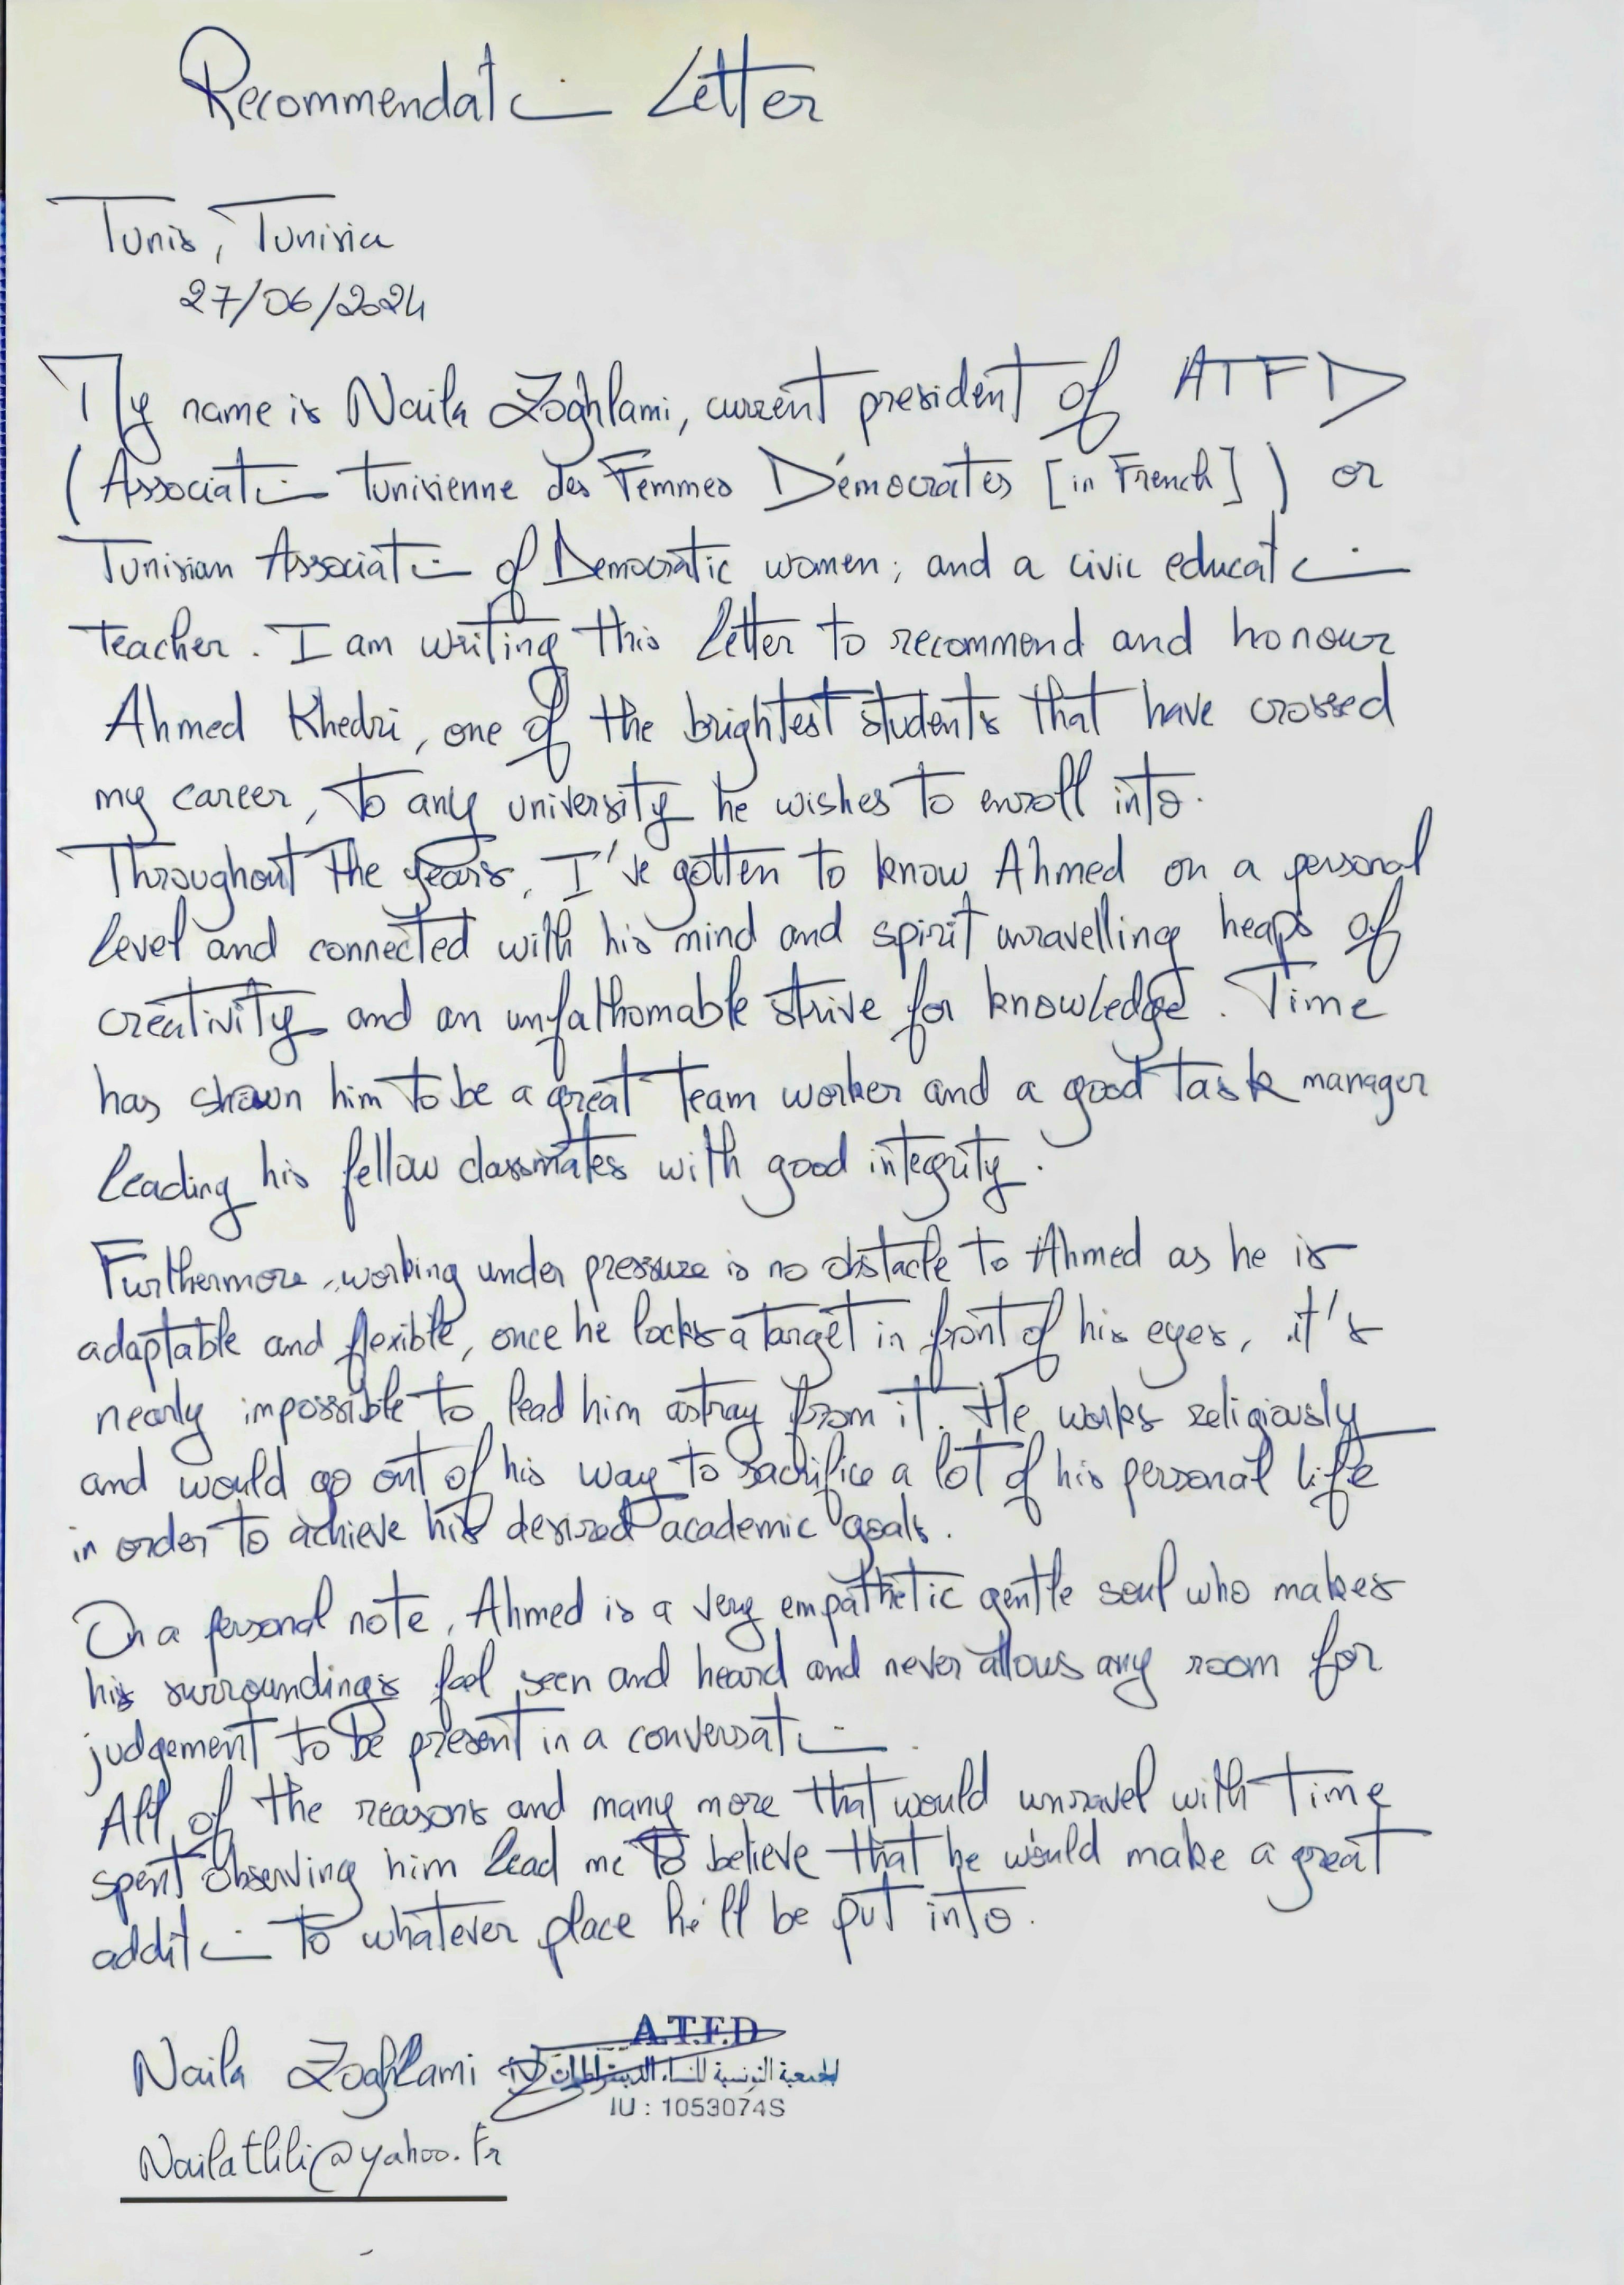 Recommendation Letter
Tunis, Tunisia
27/06/2024
My name is Naila Zoghlami, current president of ATFD
(Association tunisienne des Femmes Démocrates [in French]) or
Tunisian Association of Democratic women; and a civic education
teacher. I am writing this letter to recommend and honour
Ahmed Khedri, one of the brightest students that have crossed
my career, to any university he wishes to enroll into.
Throughout the years, I've gotten to know Ahmed on a personal
level and connected with his mind and spirit unravelling heaps of
creativity and an unfathomable strive for knowledge. Time
has shown him to be a great team worker and a good task manager
leading his fellow classmates with good integrity.
Furthermore, working under pressure is no obstacle to Ahmed as he is
adaptable and flexible, once he locks a target in front of his eyes, it's
nearly impossible to lead him astray from it. He works religiously
and would go out of his way to sacrifice a lot of his personal life
in order to achieve his desired academic goals.
On a personal note, Ahmed is a very empathetic gentle soul who makes
his surroundings feel seen and heard and never allows any room for
judgement to be present in a conversation.
All of the reasons and many more that would unravel with time
spent observing him lead me to believe that he would make a great
addition to whatever place he'll be put into.
A.T.F.D
Naila Zoghlami
الجمعية التونسية للنساء الديمقراطيات
IU : 1053074S
Nailathli@yahoo.Fr